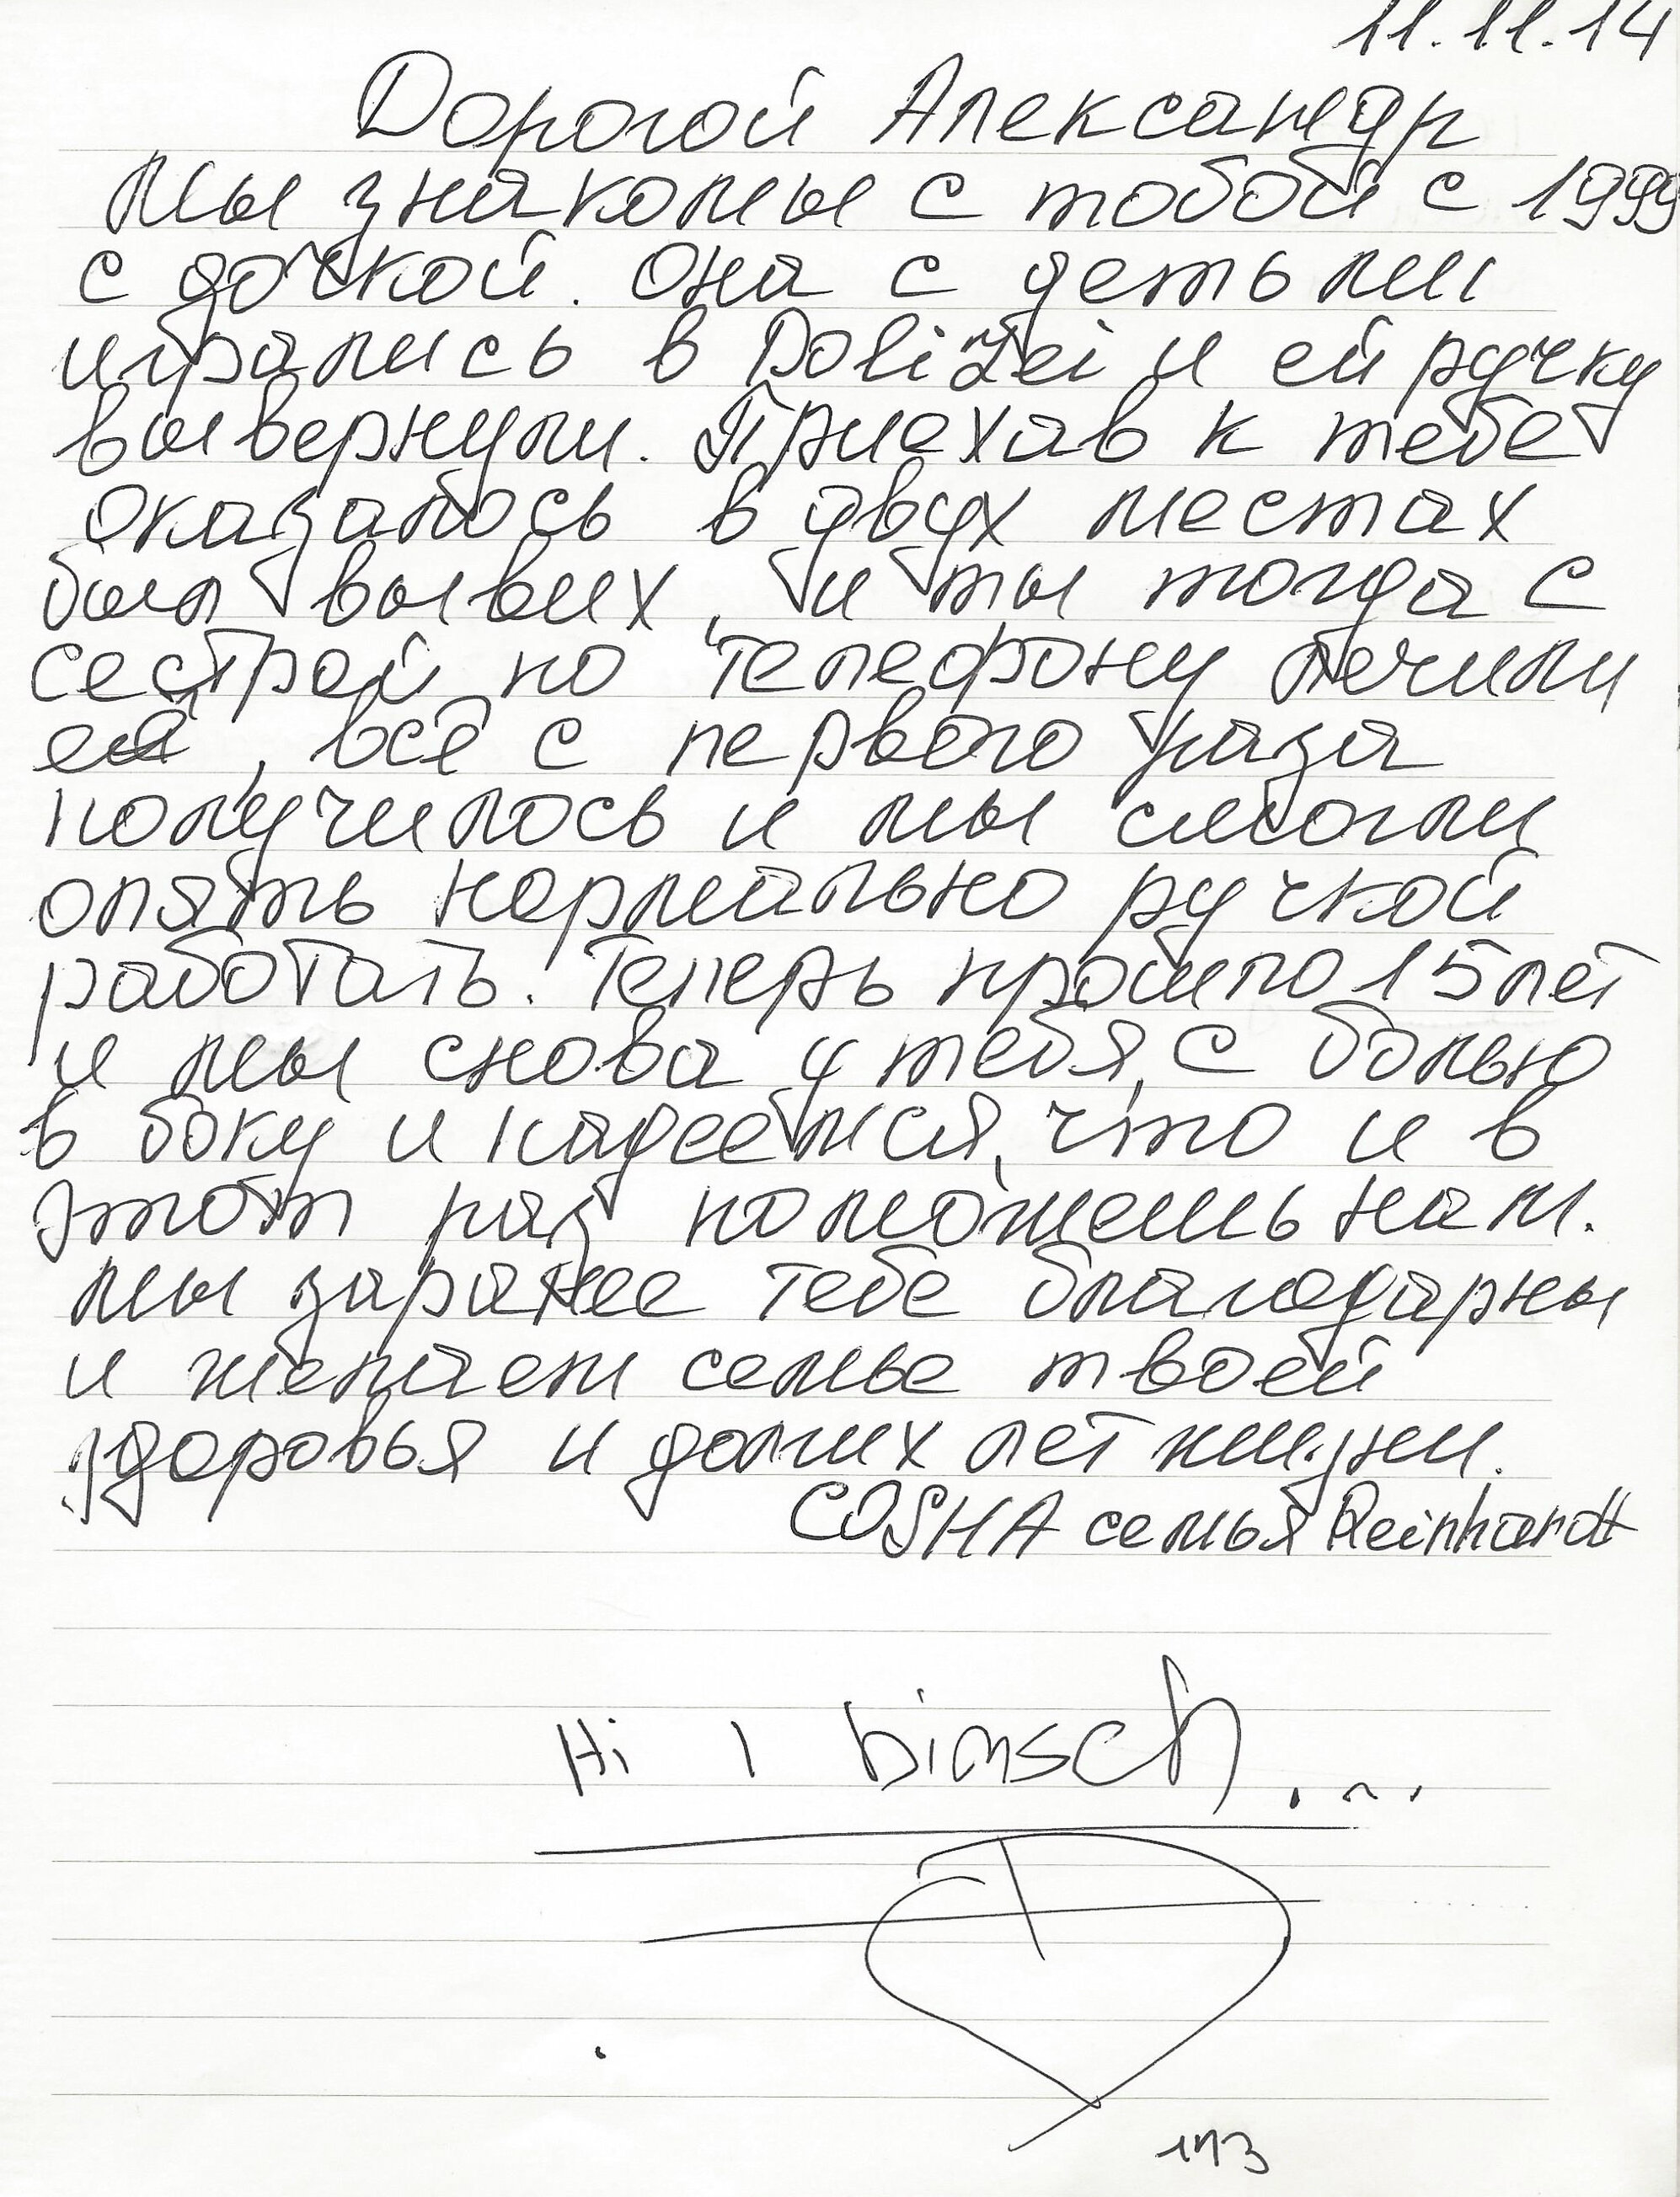 11.11.14
Дорогой Александр
Мы знакомы с тобой с 1999
с дочкой. Она с детьми
игрались в Polizei и ей ручку
вывернули. Приехав к тебе
оказалось в двух местах
был вывих, и ты тогда с
сестрой по телефону лечили
её, всё с первого раза
получилось и мы смогли
опять нормально ручкой
работать. Теперь прошло 15 лет
и мы снова у тебя, с болью
в боку и надеемся, что и в
этот раз поможешь нам.
Мы заранее тебе благодарны
и желаем семье твоей
здоровья и долгих лет жизни.
семья Reinhardt
Hi I bimsch...